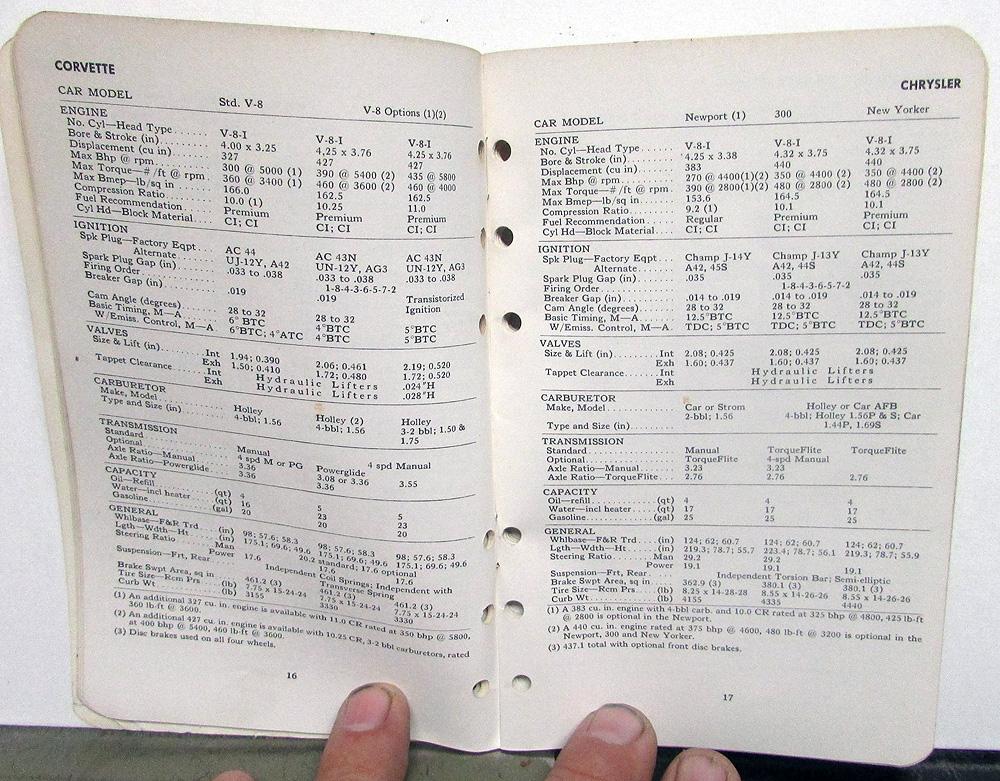 CORVETTE
CAR MODEL Std. V-8 V-8 Options (1)(2)
ENGINE
No. Cyl—Head Type....... V-8-I V-8-I V-8-I
Bore & Stroke (in) ....... 4.00 x 3.25 4.25 x 3.76 4.25 x 3.76
Displacement (cu in) ...... 327 427 427
Max Bhp @ rpm......... 300 @ 5000 (1) 390 @ 5400 (2) 435 @ 5800
Max Torque—# /ft @ rpm. 360 @ 3400 (1) 460 @ 3600 (2) 460 @ 4000
Max Bmep—lb/sq in ...... 166.0 162.5 162.5
Compression Ratio........ 10.0 (1) 10.25 11.0
Fuel Recommendation..... Premium Premium Premium
Cyl Hd—Block Material.... CI; CI CI; CI CI; CI
IGNITION
Spk Plug—Factory Eqpt... AC 44 AC 43N AC 43N
Alternate........ UJ-12Y, A42 UN-12Y, AG3 UN-12Y, AG3
Spark Plug Gap (in)...... .033 to .038 .033 to .038 .033 to .038
Firing Order............ 1-8-4-3-6-5-7-2
Breaker Gap (in)......... .019 .019 Transistorized Ignition
Cam Angle (degrees)...... 28 to 32 28 to 32
Basic Timing, M—A....... 6° BTC 4°BTC 5°BTC
W/Emiss. Control, M—A. 6°BTC; 4°ATC 4°BTC 5°BTC
VALVES
Size & Lift (in)..........Int 1.94; 0.390 2.06; 0.461 2.19; 0.520
Exh 1.50; 0.410 1.72; 0.480 1.72; 0.520
Tappet Clearance.........Int Hydraulic Lifters .024"H
Exh Hydraulic Lifters .028"H
CARBURETOR
Make, Model............. Holley Holley (2) Holley
Type and Size (in)........ 4-bbl; 1.56 4-bbl; 1.56 3-2 bbl; 1.50 & 1.75
TRANSMISSION
Standard................ Manual
Optional................ 4 spd M or PG Powerglide 4 spd Manual
Axle Ratio—Manual....... 3.36 3.08 or 3.36 3.55
Axle Ratio—Powerglide.... 3.36 3.36
CAPACITY
Oil—Refill............(qt) 4 5 5
Water—incl heater......(qt) 16 23 23
Gasoline.............(gal) 20 20 20
GENERAL
Whlbase—F&R Trd .....(in) 98; 57.6; 58.3 98; 57.6; 58.3 98; 57.6; 58.3
Lgth—Wdth—Ht.......(in) 175.1; 69.6; 49.6 175.1; 69.6; 49.6 175.1; 69.6; 49.6
Steering Ratio.........Man 20.2 standard; 17.6 optional
Power 17.6 17.6 17.6
Suspension—Frt, Rear..... Independent Coil Springs; Independent with Transverse Spring
Brake Swpt Area, sq in .... 461.2 (3) 461.2 (3) 461.2 (3)
Tire Size—Rcm Prs....... 7.75 x 15-24-24 7.75 x 15-24-24 7.75 x 15-24-24
Curb Wt..............(lb) 3155 3330 3330
(1) An additional 327 cu. in. engine is available with 11.0 CR rated at 350 bhp @ 5800,
360 lb-ft @ 3600.
(2) An additional 427 cu. in. engine is available with 10.25 CR, 3-2 bbl carburetors, rated
at 400 bhp @ 5400, 460 lb-ft @ 3600.
(3) Disc brakes used on all four wheels.
16
CHRYSLER
CAR MODEL Newport (1) 300 New Yorker
ENGINE
No. Cyl—Head Type....... V-8-I V-8-I V-8-I
Bore & Stroke (in)........ 4.25 x 3.38 4.32 x 3.75 4.32 x 3.75
Displacement (cu in)...... 383 440 440
Max Bhp @ rpm.......... 270 @ 4400(1)(2) 350 @ 4400 (2) 350 @ 4400 (2)
Max Torque—# /ft @ rpm. 390 @ 2800(1)(2) 480 @ 2800 (2) 480 @ 2800 (2)
Max Bmep—lb/sq in...... 153.6 164.5 164.5
Compression Ratio........ 9.2 (1) 10.1 10.1
Fuel Recommendation..... Regular Premium Premium
Cyl Hd—Block Material.... CI; CI CI; CI CI; CI
IGNITION
Spk Plug—Factory Eqpt... Champ J-14Y Champ J-13Y Champ J-13Y
Alternate........ A42, 44S A42, 44S A42, 44S
Spark Plug Gap (in)....... .035 .035 .035
Firing Order............. 1-8-4-3-6-5-7-2
Breaker Gap (in)......... .014 to .019 .014 to .019 .014 to .019
Cam Angle (degrees)...... 28 to 32 28 to 32 28 to 32
Basic Timing, M—A....... 12.5°BTC 12.5°BTC 12.5°BTC
W/Emiss. Control, M—A. TDC; 5°BTC TDC; 5°BTC TDC; 5°BTC
VALVES
Size & Lift (in)..........Int 2.08; 0.425 2.08; 0.425 2.08; 0.425
Exh 1.60; 0.437 1.60; 0.437 1.60; 0.437
Tappet Clearance.........Int Hydraulic Lifters
Exh Hydraulic Lifters
CARBURETOR
Make, Model............. Car or Strom Holley or Car AFB
2-bbl; 1.56 4-bbl; Holley 1.56P & S; Car
Type and Size (in)........ 1.44P, 1.69S
TRANSMISSION
Standard................ Manual TorqueFlite TorqueFlite
Optional................ TorqueFlite 4-spd Manual
Axle Ratio—Manual...... 3.23 3.23
Axle Ratio—TorqueFlite... 2.76 2.76 2.76
CAPACITY
Oil—refill.............(qt) 4 4 4
Water—incl heater......(qt) 17 17 17
Gasoline.............(gal) 25 25 25
GENERAL
Whlbase—F&R Trd.....(in) 124; 62; 60.7 124; 62; 60.7 124; 62; 60.7
Lgth—Wdth—Ht.......(in) 219.3; 78.7; 55.7 223.4; 78.7; 56.1 219.3; 78.7; 55.9
Steering Ratio.........Man 29.2 29.2
Power 19.1 19.1 19.1
Suspension—Frt, Rear..... Independent Torsion Bar; Semi-elliptic
Brake Swpt Area, sq in .... 362.9 (3) 380.1 (3) 380.1 (3)
Tire Size—Rcm Prs....... 8.25 x 14-28-28 8.55 x 14-26-26 8.55 x 14-26-26
Curb Wt..............(lb) 4155 4335 4440
(1) A 383 cu. in. engine with 4-bbl carb. and 10.0 CR rated at 325 bhp @ 4800, 425 lb-ft
@ 2800 is optional in the Newport.
(2) A 440 cu. in. engine rated at 375 bhp @ 4600, 480 lb-ft @ 3200 is optional in the
Newport, 300 and New Yorker.
(3) 437.1 total with optional front disc brakes.
17